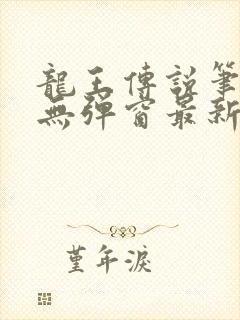 龍王傳說筆
無彈窗最新
堇年淚